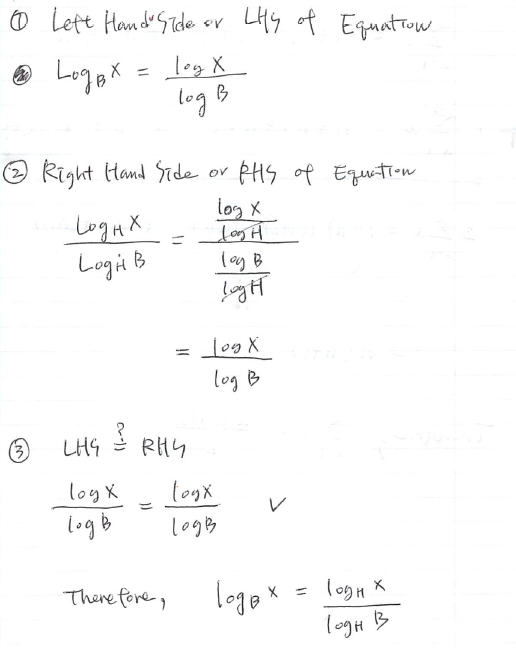 ① Left Hand Side or LHS of Equation
Log_B X = log X / log B
② Right Hand Side or RHS of Equation
Log_H X / Log_H B = (log X / log H) / (log B / log H)
= log X / log B
③ LHS ≟ RHS
log X / log B = log X / log B ✓
Therefore, log_B X = log_H X / log_H B